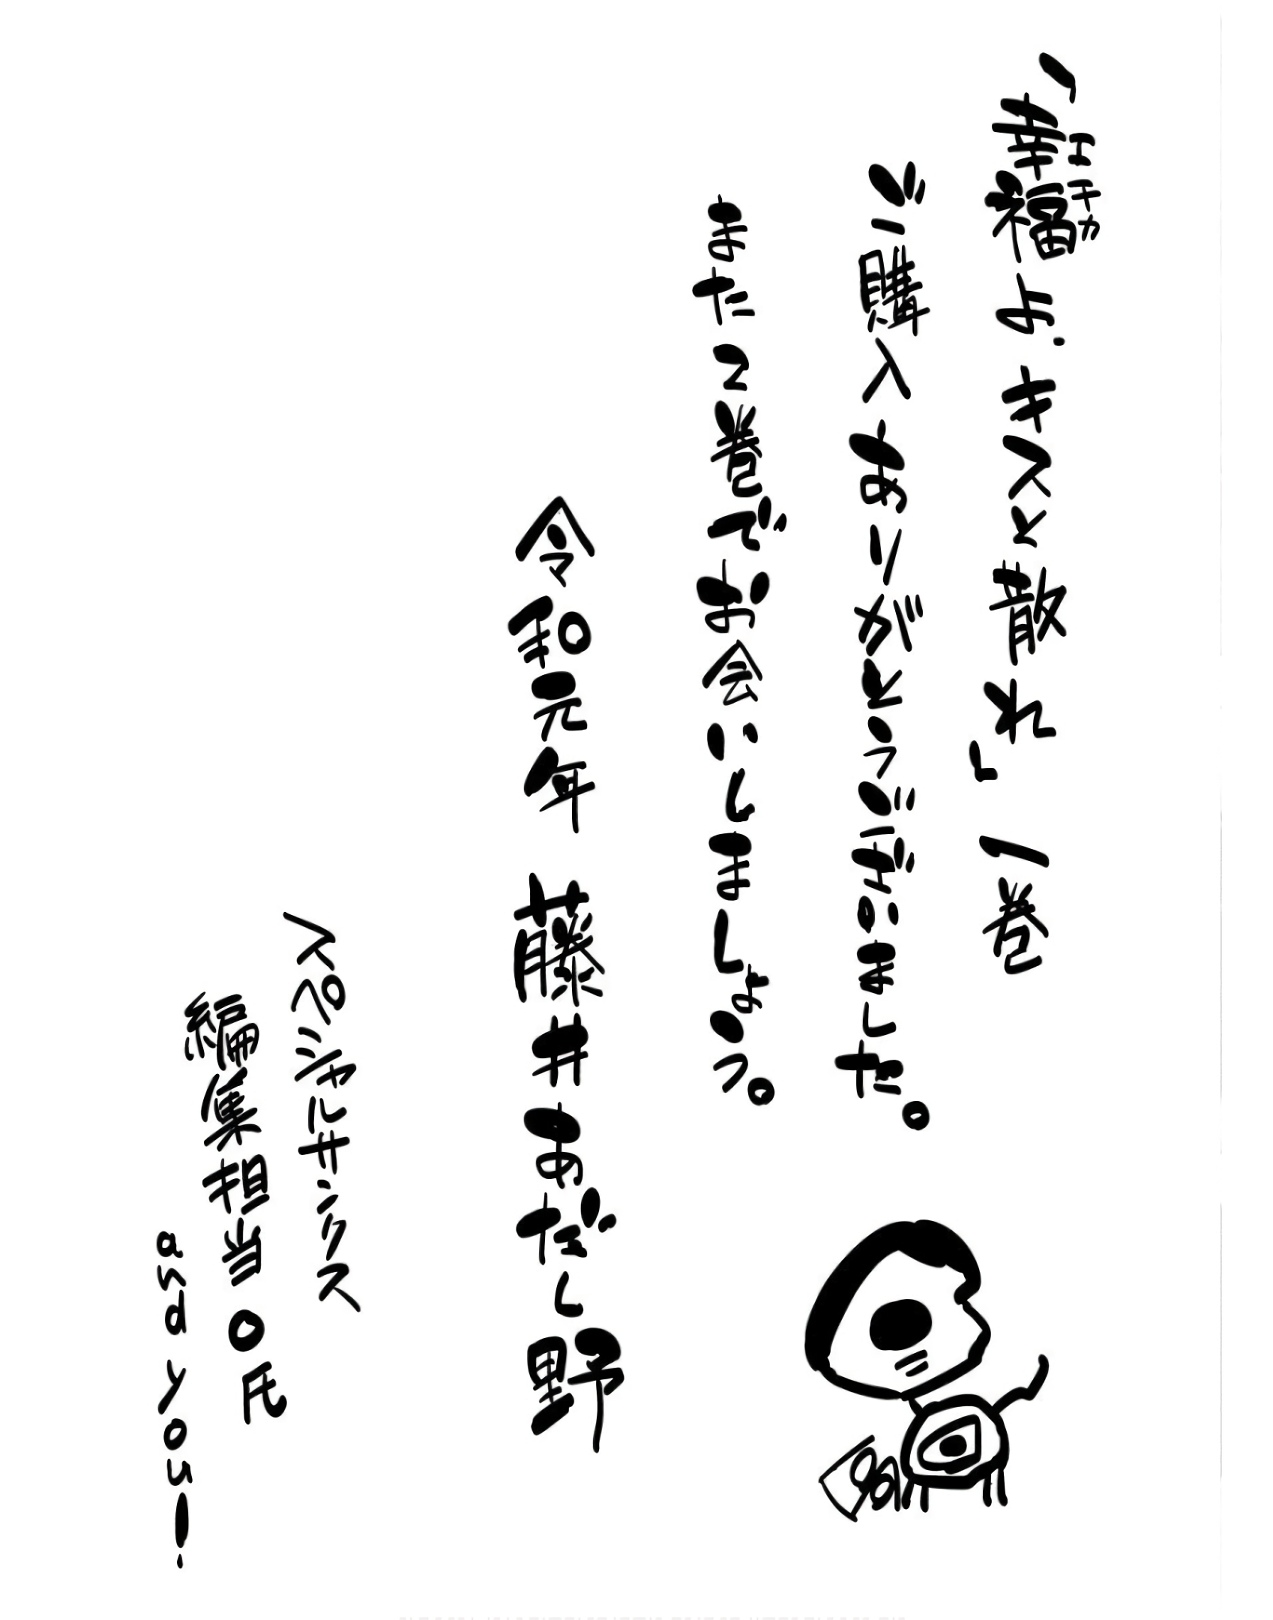 「幸福よ、キスと散れ」一巻
エチカ
ご購入ありがとうございました。
また2巻でお会いしましょう。
令和元年 藤井あだし野
スペシャルサンクス
編集担当O氏
asd you!